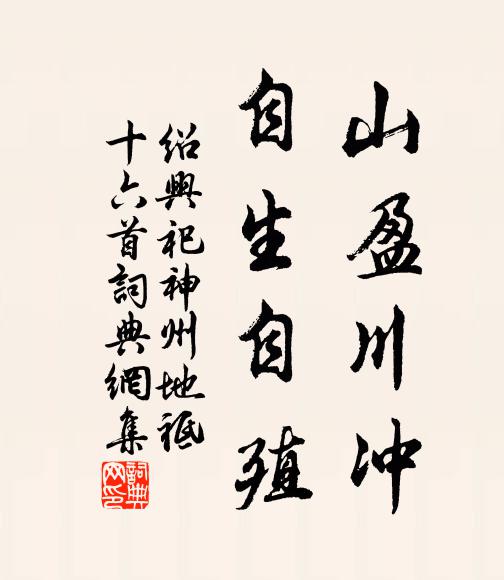 山盈川冲
自生自殖
紹興祀神州地祇
十六首詞典網集
詞典
网印